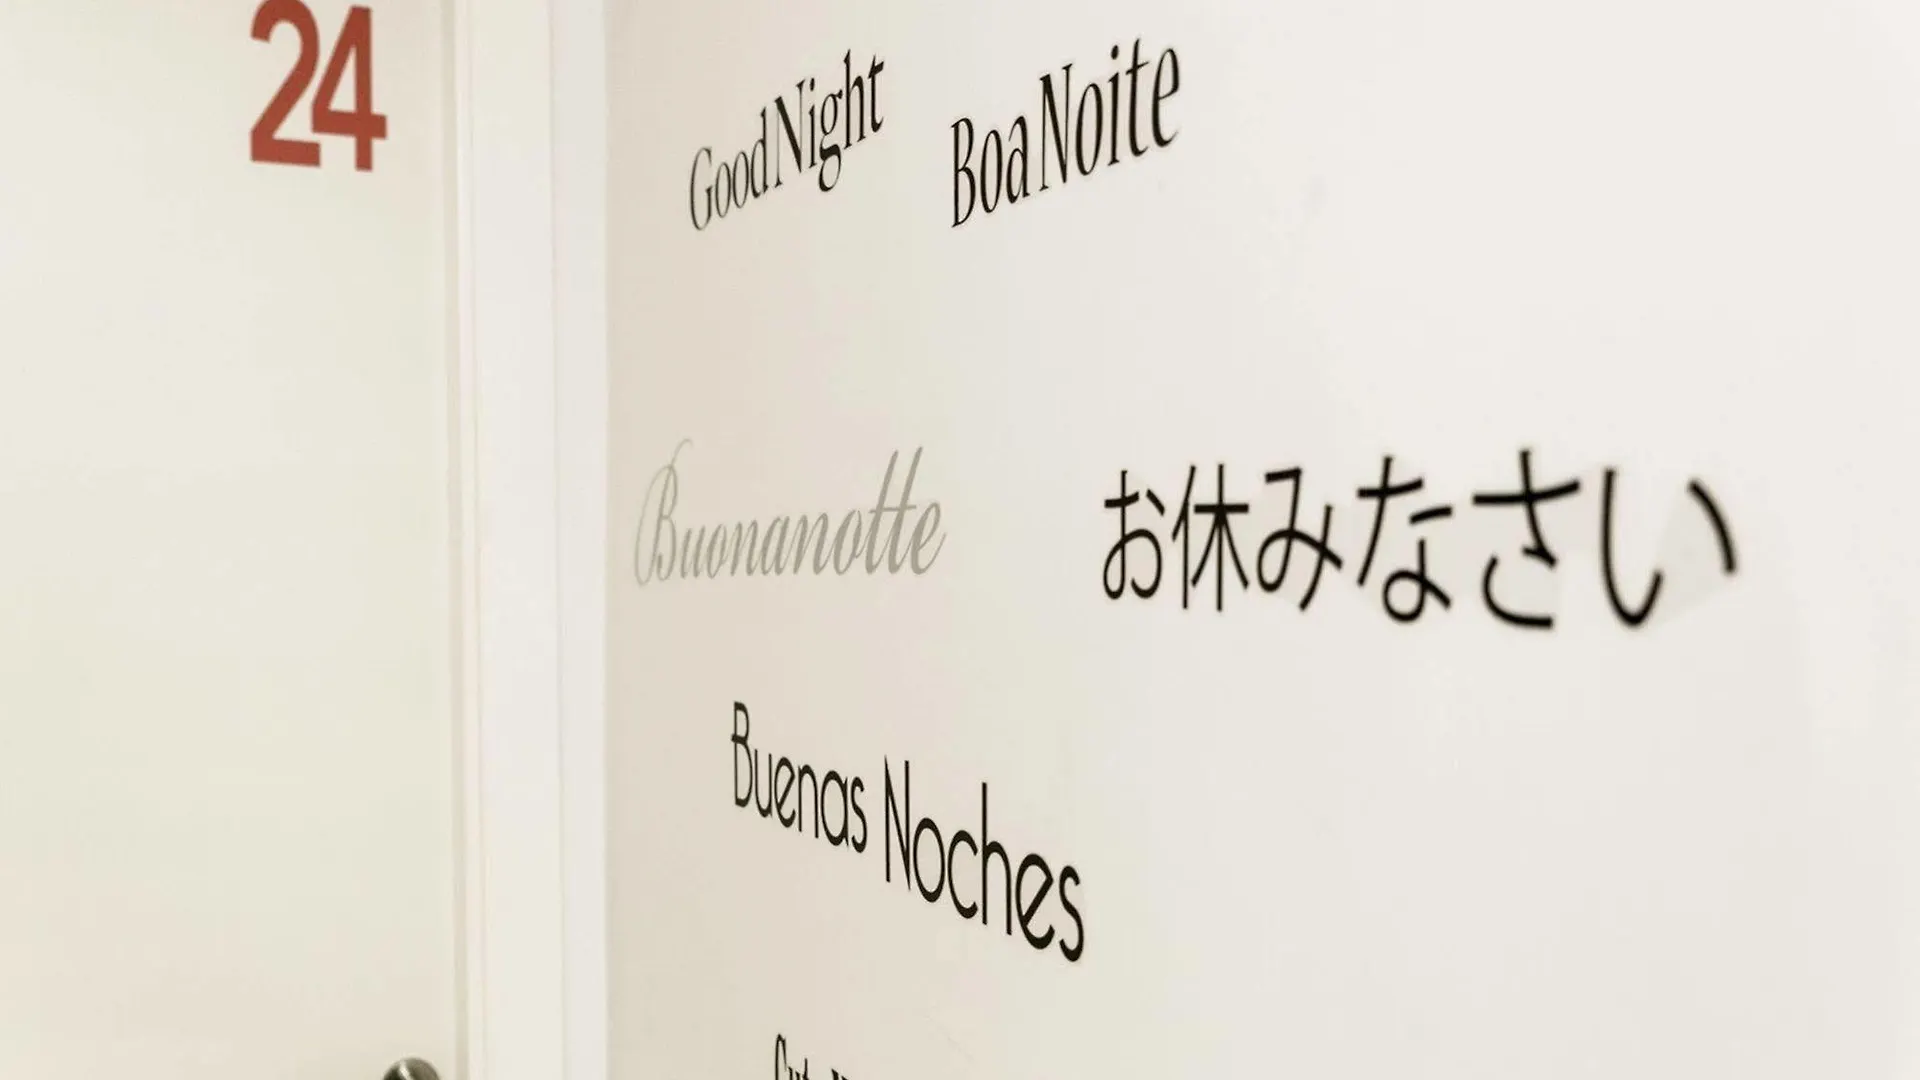 24
Good Night
Boa Noite
Buonanotte
お休みなさい
Buenas Noches